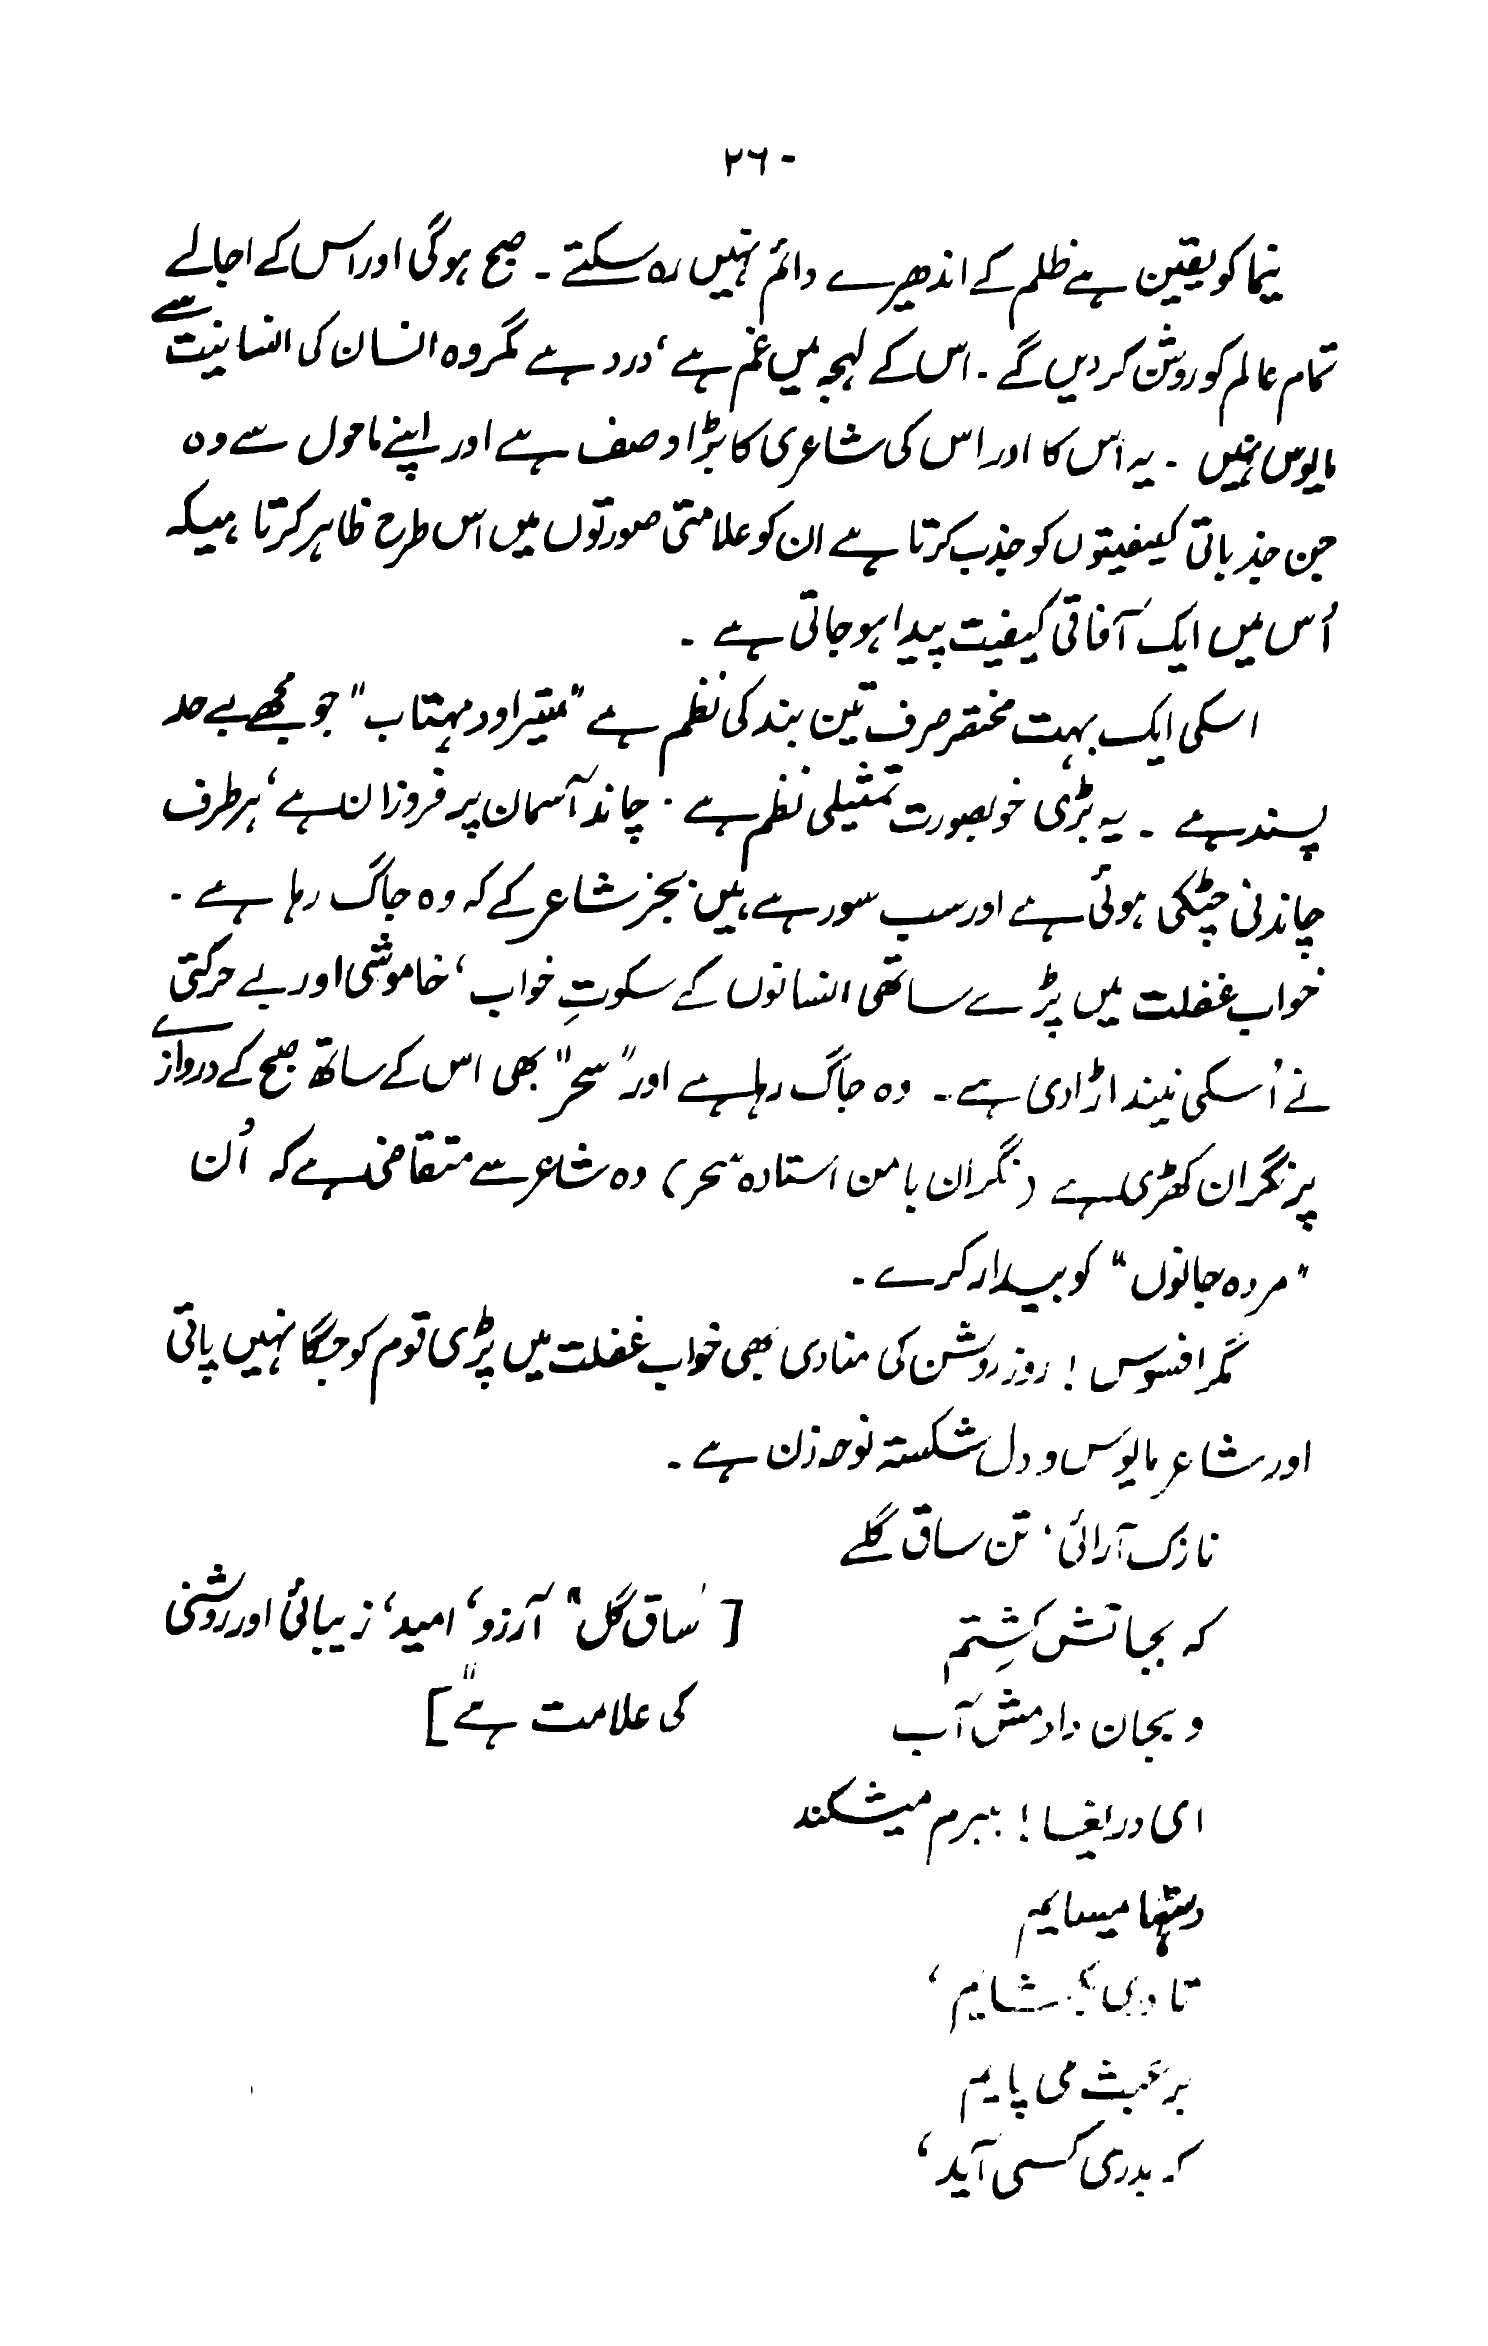 ۲۶۰
نیما کو یقین ہے ظلم کے اندھیرے دائم نہیں رہ سکتے ۔ صبح ہوگی اور اس کے اجالے
تمام عالم کو روشن کر دیں گے ۔ اس کے لہجہ میں غم ہے ، درد ہے مگر وہ انسان کی انسانیت سے
مایوس نہیں ۔ یہ اُس کا اور اس کی شاعری کا بڑا وصف ہے اور اپنے ماحول سے وہ
جن جذباتی کیفیتوں کو جذب کرتا ہے ان کو علامتی صورتوں میں اس طرح ظاہر کرتا ہیکہ
اُس میں ایک آفاقی کیفیت پیدا ہو جاتی ہے ۔
اسکی ایک بہت مختصر صرف تین بند کی نظم ہے "میتیرا ود مہتاب" جو مجھے بے حد
پسند ہے ۔ یہ بڑی خوبصورت تمثیلی نظم ہے ۔ چاند آسمان پر فروزان ہے ، ہر طرف
چاندنی چٹکی ہوئی ہے اور سب سورہے ہیں بجز شاعر کے کہ وہ جاگ رہا ہے ۔
خواب غفلت میں پڑے ساتھی انسانوں کے سکوتِ خواب ، خاموشی اور بے حرکتی
نے اُسکی نیند اڑا دی ہے ۔ وہ جاگ رہا ہے اور "سحر" بھی اس کے ساتھ صبح کے دروازے
پر نگران کھڑی ہے (نگران با من استادہ سحر) وہ شاعر سے متقاضی ہے کہ اُن
"مردہ جانوں" کو بیدار کرے ۔
مگر افسوس ! روز روشن کی منادی بھی خواب غفلت میں پڑی قوم کو جگا نہیں پاتی
اور شاعر مایوس و دل شکستہ نوحہ زن ہے ۔
نازک آرائی ، تن ساق گلے
کہ بجانش کِشتم
[ "ساق گل" آرزو ، امید ، زیبائی اور روشنی
و بجان دادمش آب
کی علامت ہے" ]
ای دریغا ! ببرم میشکند
دستہا میسایم
تا دری بگشایم ،
بر عبث می پایم
کہ بدری کسی آید ،